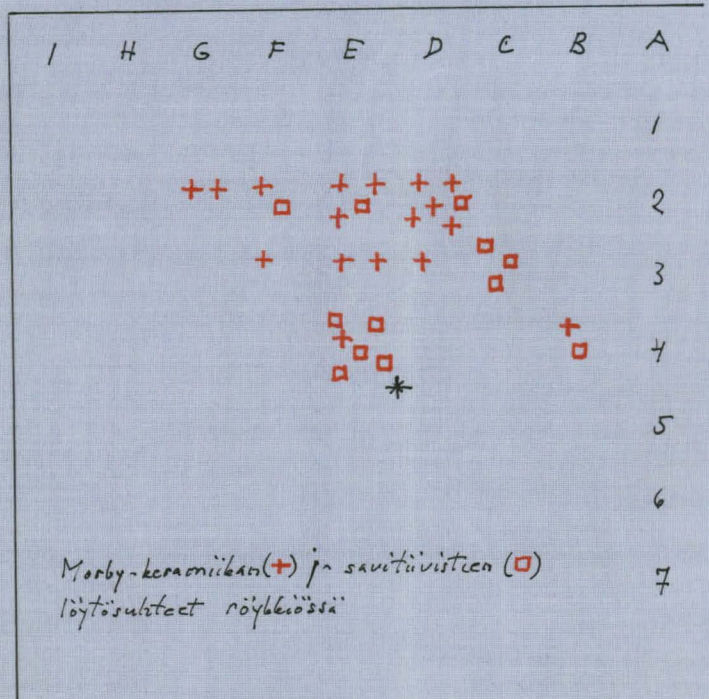 I H G F E D C B A
1
2
3
4
5
6
7
Morby-keramiikan (+) ja savitiivisteen (□)
löytösuhteet röykkiössä